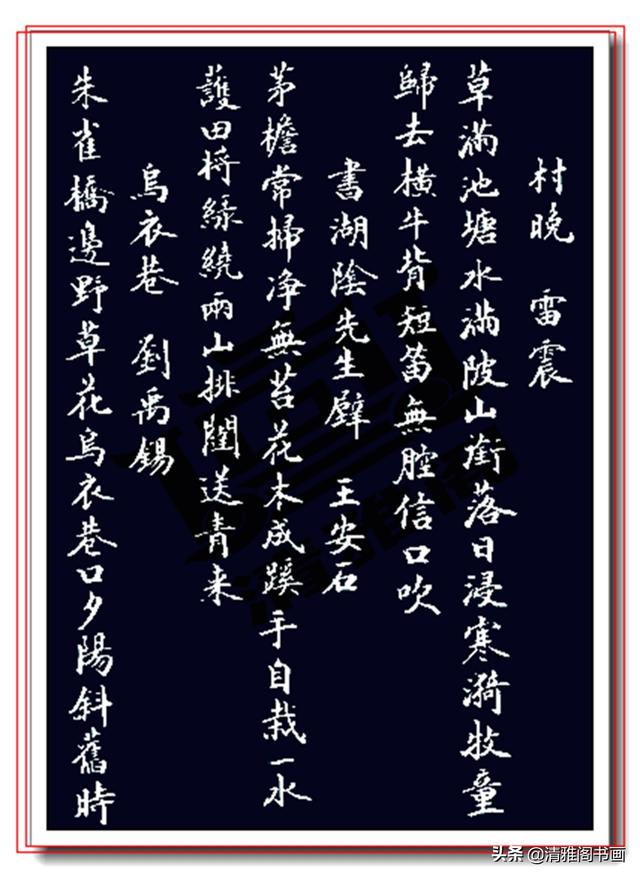 村晚 雷震
草滿池塘水滿陂山銜落日浸寒漪牧童
歸去橫牛背短笛無腔信口吹
書湖陰先生壁 王安石
茅檐常掃净無苔花木成蹊手自栽一水
護田将綠繞兩山排闥送青来
烏衣巷 劉禹錫
朱雀橋邊野草花烏衣巷口夕陽斜舊時
清雅阁
头条 @清雅阁书画